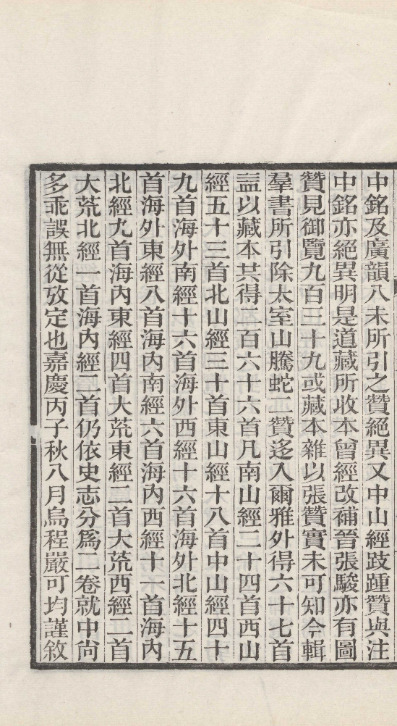 中銘及廣韻八未所引之贊絕異又中山經跂踵贊與注
中銘亦絕異明是道藏所收本曾經改補晉張駿亦有圖
贊見御覽九百三十九或藏本雜以張贊實未可知今輯
羣書所引除太室山騰蛇二贊迻入爾雅外得六十七首
益以藏本共得二百六十六首凡南山經二十四首西山
經五十三首北山經三十首東山經十八首中山經四十
九首海外南經十六首海外西經十六首海外北經十五
首海外東經八首海內南經六首海內西經十一首海內
北經九首海內東經四首大荒東經二首大荒西經二首
大荒北經一首海內經二首仍依史志分爲二卷就中尙
多乖誤無從攷定也嘉慶丙子秋八月烏程嚴可均謹敘